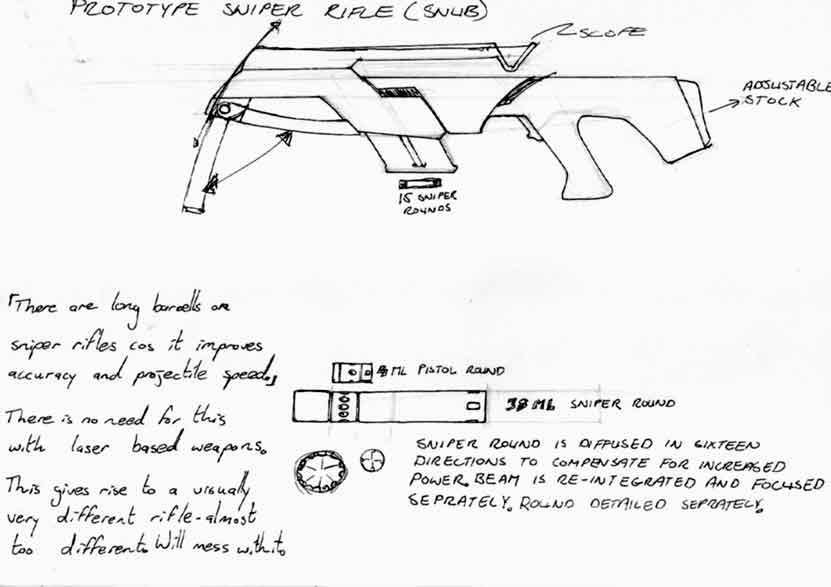 PROTOTYPE SNIPER RIFLE (SNUB)
SCOPE
ADJUSTABLE
STOCK
15 SNIPER
ROUNDS
「There are long barells on
sniper rifles cos it improves
accuracy and projectile speed.」
There is no need for this
with laser based weapons.
This gives rise to a visually
very different rifle-almost
too different. Will mess with it.
ML PISTOL ROUND
38 ML SNIPER ROUND
SNIPER ROUND IS DIFFUSED IN SIXTEEN
DIRECTIONS TO COMPENSATE FOR INCREASED
POWER. BEAM IS RE-INTEGRATED AND FOCUSED
SEPRATELY. ROUND DETAILED SEPRATELY.